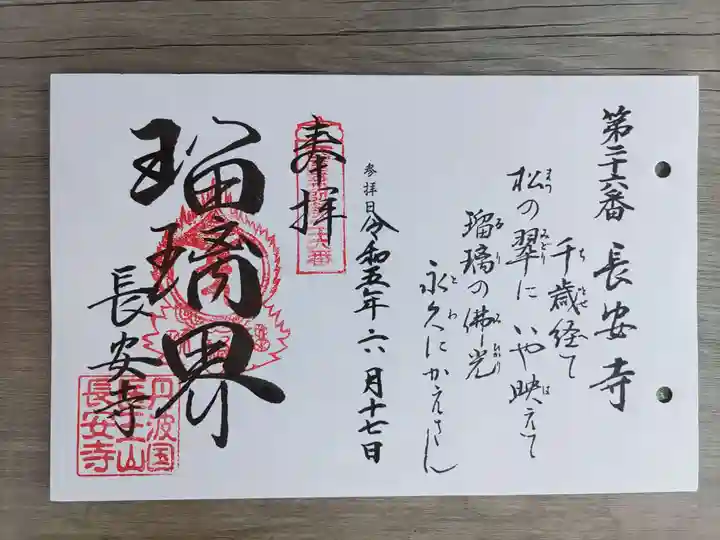 第二十六番 長安寺
ちとせ
千歳経て
まつ みどり は
松の翠に いや映えて
るり
瑠璃の佛光
とわ
永久にかえさん
参拝日 令和五年 六月十七日
奉拝
瑠璃界
長安寺
丹波国
医王山
長安寺